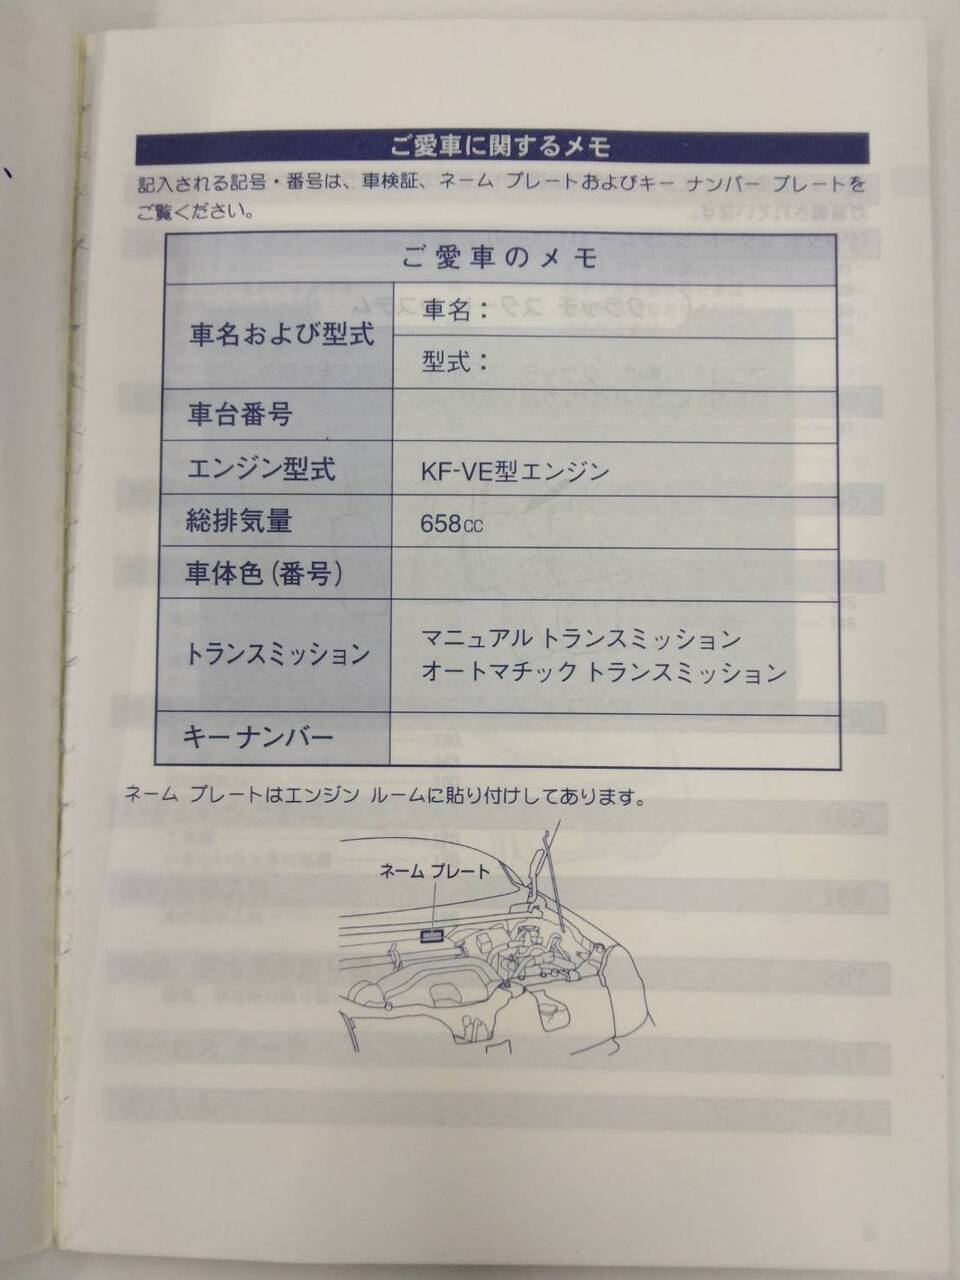 ご愛車に関するメモ
記入される記号・番号は、車検証、ネーム プレートおよびキー ナンバー プレートを
ご覧ください。
ご愛車のメモ
車名および型式
車名：
型式：
車台番号
エンジン型式
KF-VE型エンジン
総排気量
658㏄
車体色(番号)
トランスミッション
マニュアル トランスミッション
オートマチック トランスミッション
キーナンバー
ネーム プレートはエンジン ルームに貼り付けしてあります。
ネーム プレート